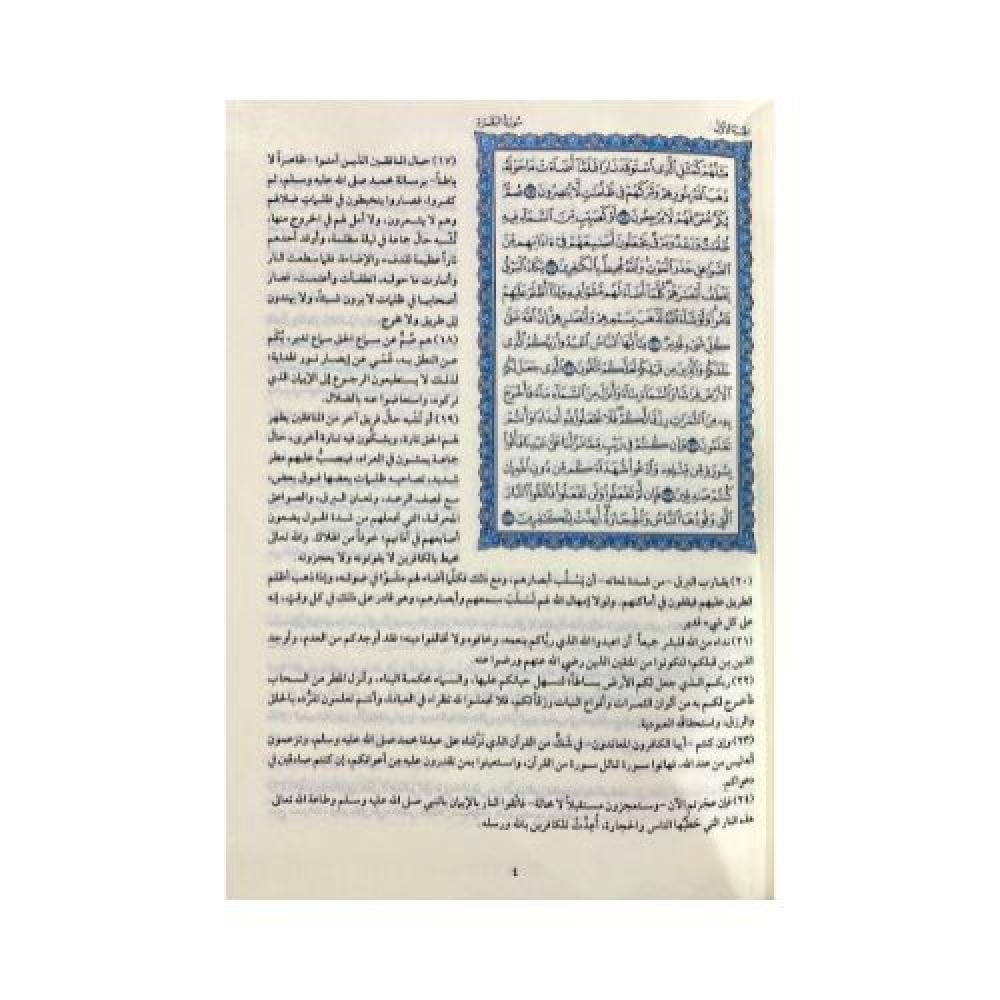 الجزء الأول
سورة البقرة
مَثَلُهُمْ كَمَثَلِ ٱلَّذِى ٱسْتَوْقَدَ نَارًا فَلَمَّآ أَضَآءَتْ مَا حَوْلَهُۥ
ذَهَبَ ٱللَّهُ بِنُورِهِمْ وَتَرَكَهُمْ فِى ظُلُمَٰتٍ لَّا يُبْصِرُونَ ١٧ صُمٌّۢ
بُكْمٌ عُمْىٌ فَهُمْ لَا يَرْجِعُونَ ١٨ أَوْ كَصَيِّبٍ مِّنَ ٱلسَّمَآءِ فِيهِ
ظُلُمَٰتٌ وَرَعْدٌ وَبَرْقٌ يَجْعَلُونَ أَصَٰبِعَهُمْ فِىٓ ءَاذَانِهِم مِّنَ
ٱلصَّوَٰعِقِ حَذَرَ ٱلْمَوْتِ وَٱللَّهُ مُحِيطٌۢ بِٱلْكَٰفِرِينَ ١٩ يَكَادُ ٱلْبَرْقُ
يَخْطَفُ أَبْصَٰرَهُمْ كُلَّمَآ أَضَآءَ لَهُم مَّشَوْا۟ فِيهِ وَإِذَآ أَظْلَمَ عَلَيْهِمْ
قَامُوا۟ وَلَوْ شَآءَ ٱللَّهُ لَذَهَبَ بِسَمْعِهِمْ وَأَبْصَٰرِهِمْ إِنَّ ٱللَّهَ عَلَىٰ
كُلِّ شَىْءٍ قَدِيرٌ ٢٠ يَٰٓأَيُّهَا ٱلنَّاسُ ٱعْبُدُوا۟ رَبَّكُمُ ٱلَّذِى
خَلَقَكُمْ وَٱلَّذِينَ مِن قَبْلِكُمْ لَعَلَّكُمْ تَتَّقُونَ ٢١ ٱلَّذِى جَعَلَ لَكُمُ
ٱلْأَرْضَ فِرَٰشًا وَٱلسَّمَآءَ بِنَآءً وَأَنزَلَ مِنَ ٱلسَّمَآءِ مَآءً فَأَخْرَجَ
بِهِۦ مِنَ ٱلثَّمَرَٰتِ رِزْقًا لَّكُمْ فَلَا تَجْعَلُوا۟ لِلَّهِ أَندَادًا وَأَنتُمْ
تَعْلَمُونَ ٢٢ وَإِن كُنتُمْ فِى رَيْبٍ مِّمَّا نَزَّلْنَا عَلَىٰ عَبْدِنَا فَأْتُوا۟
بِسُورَةٍ مِّن مِّثْلِهِۦ وَٱدْعُوا۟ شُهَدَآءَكُم مِّن دُونِ ٱللَّهِ إِن
كُنتُمْ صَٰدِقِينَ ٢٣ فَإِن لَّمْ تَفْعَلُوا۟ وَلَن تَفْعَلُوا۟ فَٱتَّقُوا۟ ٱلنَّارَ
ٱلَّتِى وَقُودُهَا ٱلنَّاسُ وَٱلْحِجَارَةُ أُعِدَّتْ لِلْكَٰفِرِينَ ٢٤
(١٧) حال المنافقين الذين آمنوا -ظاهراً لا
باطناً- برسالة محمد صلى الله عليه وسلم، ثم
كفروا، فصاروا يتخبطون في ظلمات ضلالهم
وهم لا يشعرون، ولا أمل لهم في الخروج منها،
تُشْبه حالَ جماعة في ليلة مظلمة، وأوقد أحدهم
ناراً عظيمة للدفء والإضاءة، فلما سطعت النار
وأنارت ما حوله، انطفأت وأعتمت، فصار
أصحابها في ظلمات لا يرون شيئاً، ولا يهتدون
إلى طريق ولا مخرج.
(١٨) هم صُمٌّ عن سماع الحق سماع تدبر، بُكْم
عن النطق به، عُمْي عن إبصار نور الهداية؛
لذلك لا يستطيعون الرجوع إلى الإيمان الذي
تركوه، واستعاضوا عنه بالضلال.
(١٩) أو تُشْبه حالُ فريق آخر من المنافقين يظهر
لهم الحق تارة، ويشكُّون فيه تارة أخرى، حالَ
جماعة يمشون في العراء، فينصبُّ عليهم مطر
شديد، تصاحبه ظلمات بعضها فوق بعض،
مع قصف الرعد، ولمعان البرق، والصواعق
المحرقة، التي تجعلهم من شدة الهول يضعون
أصابعهم في آذانهم؛ خوفاً من الهلاك. والله تعالى
محيط بالكافرين لا يفوتونه ولا يعجزونه.
(٢٠) يقارب البرق -من شدة لمعانه- أن يَسْلُب أبصارهم، ومع ذلك فكلَّما أضاء لهم مشَوْا في ضوئه، وإذا ذهب أظلم
الطريق عليهم فيقفون في أماكنهم. ولولا إمهال الله لهم لَسَلَبَ سمعهم وأبصارهم، وهو قادر على ذلك في كل وقتٍ، إنه
على كل شيء قدير.
(٢١) نداء من الله للبشر جميعاً أن اعبدوا الله الذي ربَّاكم بنعمه، وخافوه ولا تخالفوا دينه؛ فقد أوجدكم من العدم، وأوجد
الذين من قبلكم؛ لتكونوا من المتقين الذين رضي الله عنهم ورضوا عنه.
(٢٢) ربكم الذي جعل لكم الأرض بساطاً؛ لتسهل حياتكم عليها، والسماء محكمة البناء، وأنزل المطر من السحاب
فأخرج لكم به من ألوان الثمرات وأنواع النبات رزقاً لكم، فلا تجعلوا لله نظراء في العبادة، وأنتم تعلمون تفرُّده بالخلق
والرزق، واستحقاقه العبودية.
(٢٣) وإن كنتم -أيها الكافرون المعاندون- في شَكٍّ من القرآن الذي نَزَّلناه على عبدنا محمد صلى الله عليه وسلم، وتزعمون
أنه ليس من عند الله، فهاتوا سورة تماثل سورة من القرآن، واستعينوا بمن تقدرون عليه مِن أعوانكم، إن كنتم صادقين في
دعواكم.
(٢٤) فإن عجَزتم الآن -وستعجزون مستقبلاً لا محالة- فاتَّقوا النار بالإيمان بالنبي صلى الله عليه وسلم وطاعة الله تعالى.
هذه النار التي حَطَبُها الناس والحجارة، أُعِدَّتْ للكافرين بالله ورسله.
٤